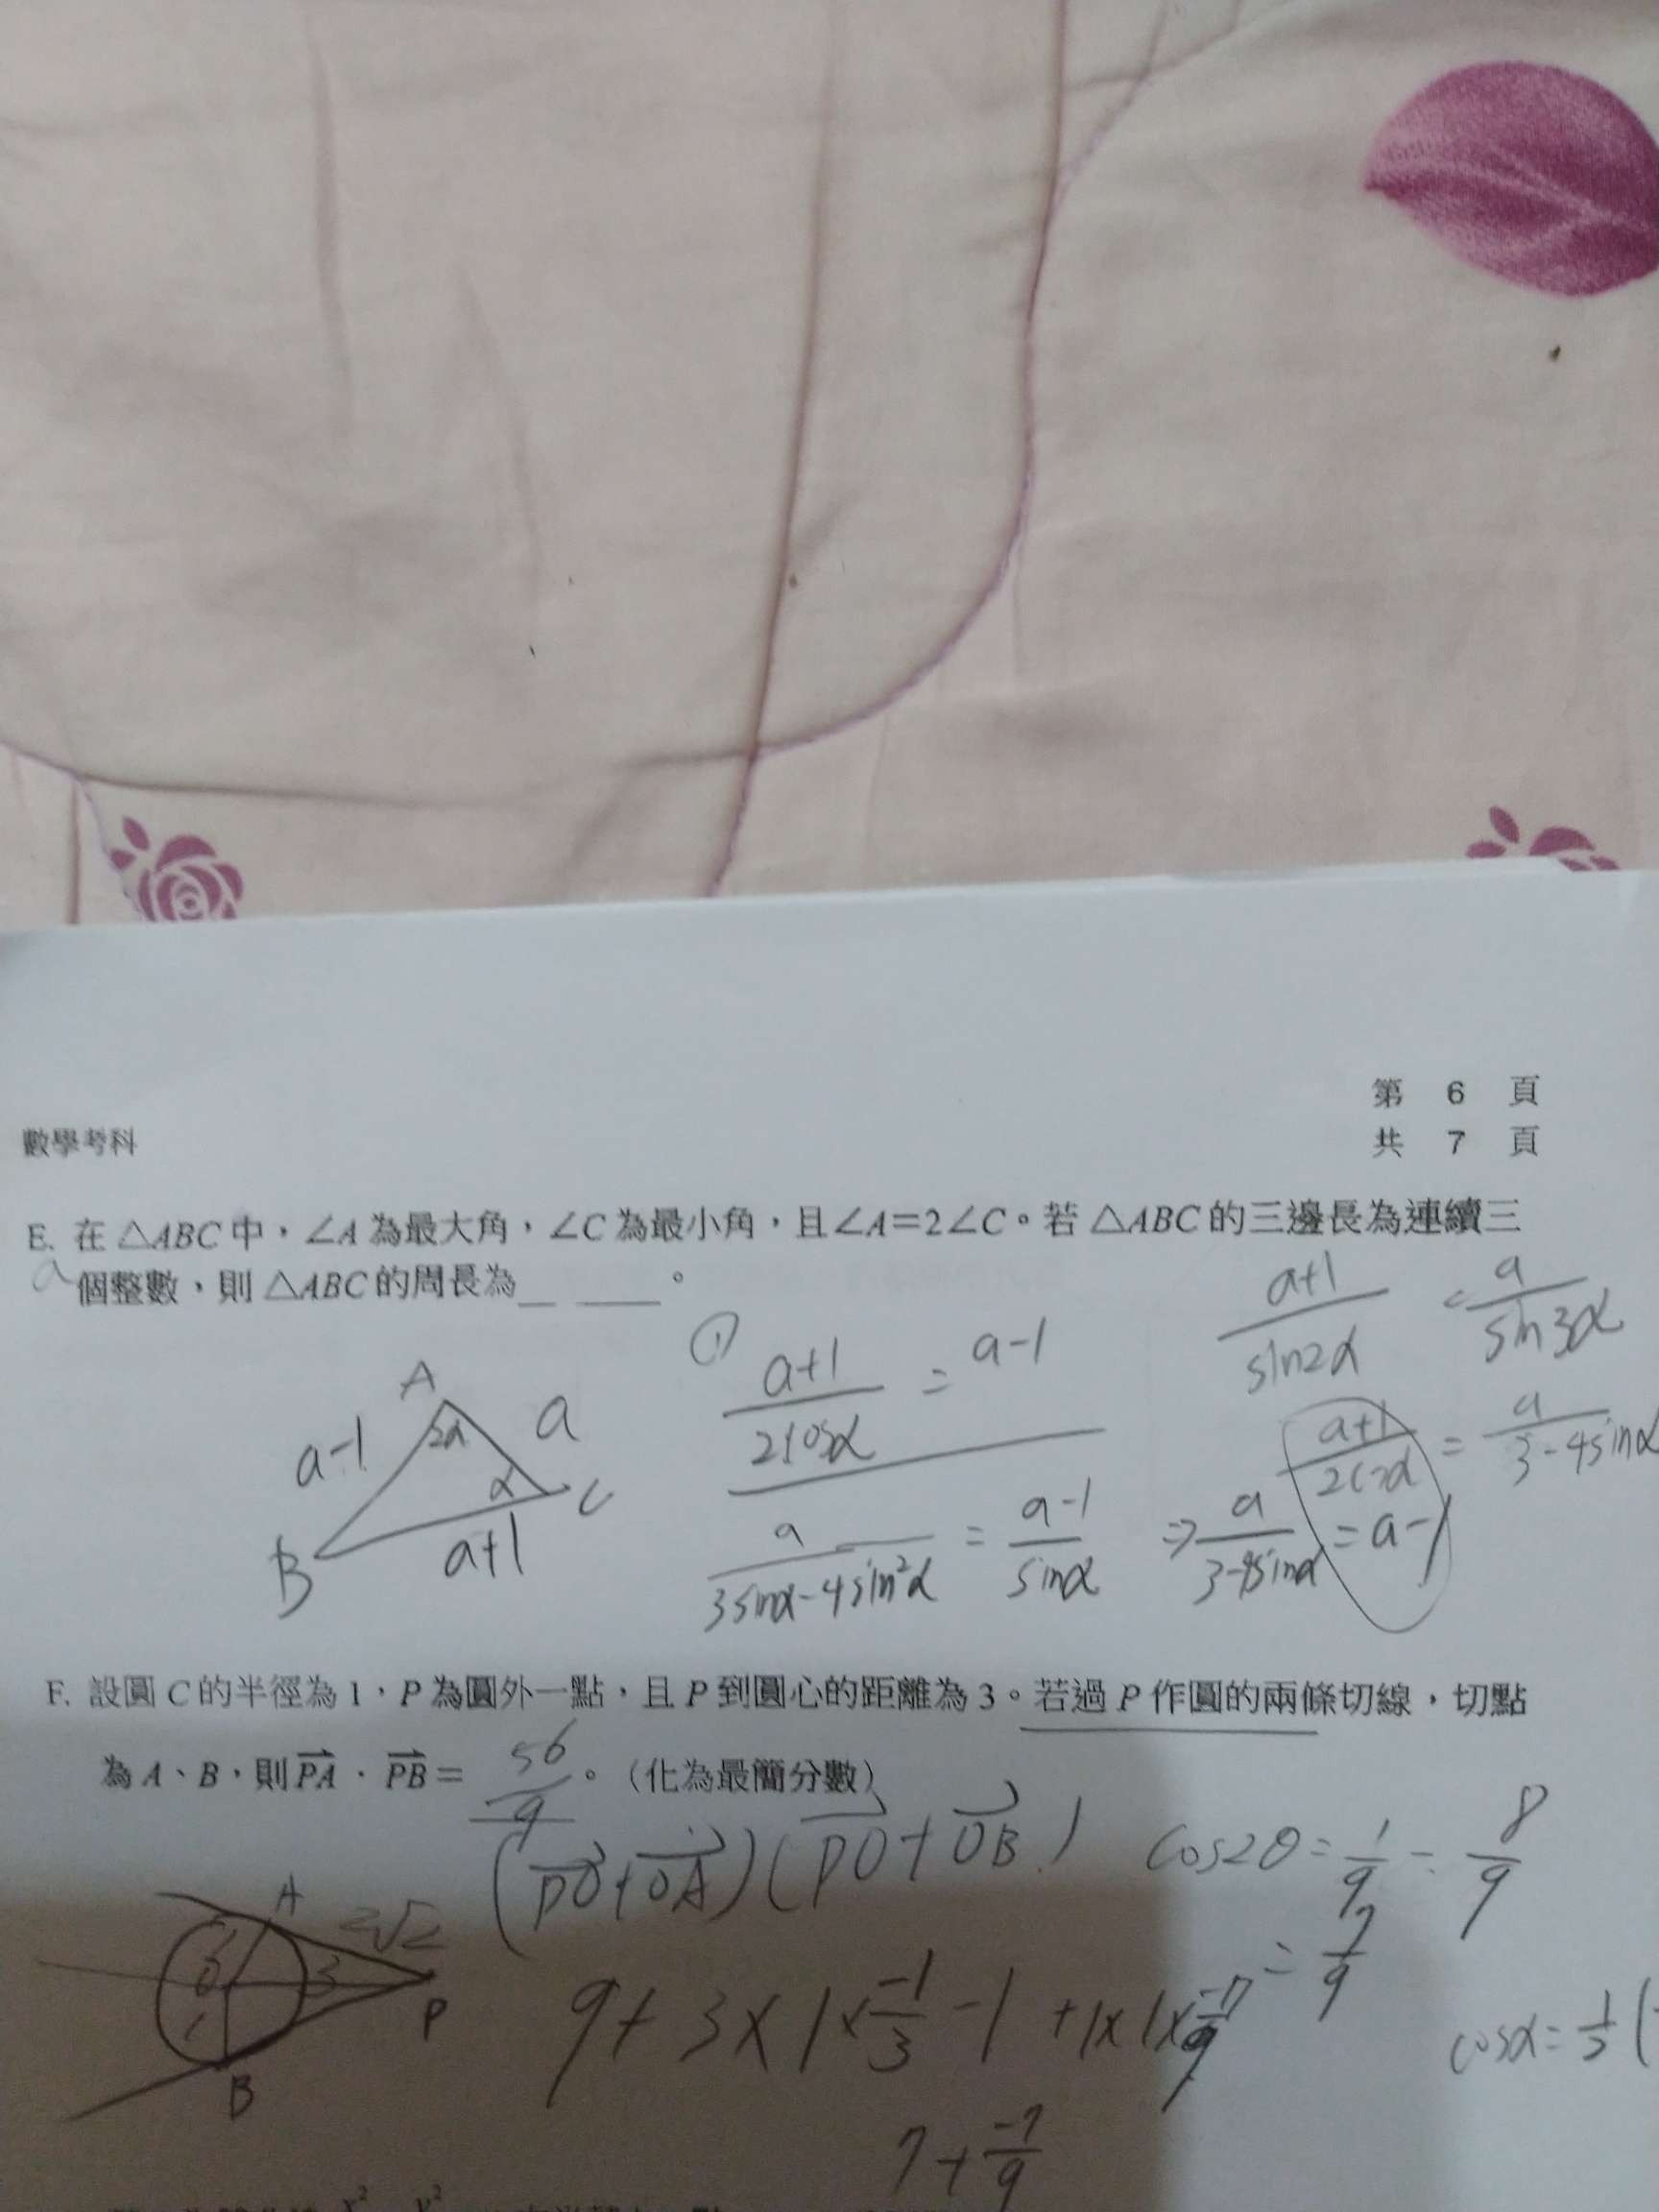 第 6 頁
共 7 頁
數學考科
E. 在 △ABC 中，∠A 為最大角，∠C 為最小角，且∠A=2∠C。若 △ABC 的三邊長為連續三
a 個整數，則 △ABC 的周長為__ ____。
A
2α
a-1
a
α
C
B
a+1
①
a+1 / 2cosα = a-1
a / 3sinα-4sin²α = a-1 / sinα ⇒ a / 3-4sinα = a-1
a+1 / sin2α = a / sin3α
a+1 / 2cosα = a / 3-4sinα
F. 設圓 C 的半徑為 1，P 為圓外一點，且 P 到圓心的距離為 3。若過 P 作圓的兩條切線，切點
為 A、B，則 PA · PB = 56/9。（化為最簡分數）
(PO+OA)(PO+OB)
cos2θ = 1/9 - 8/9
= 7/9
A
2√2
O
3
1
P
B
9+3×1×-1/3 -1 +1×1×-7/9
cosα=1/3
7+ -7/9